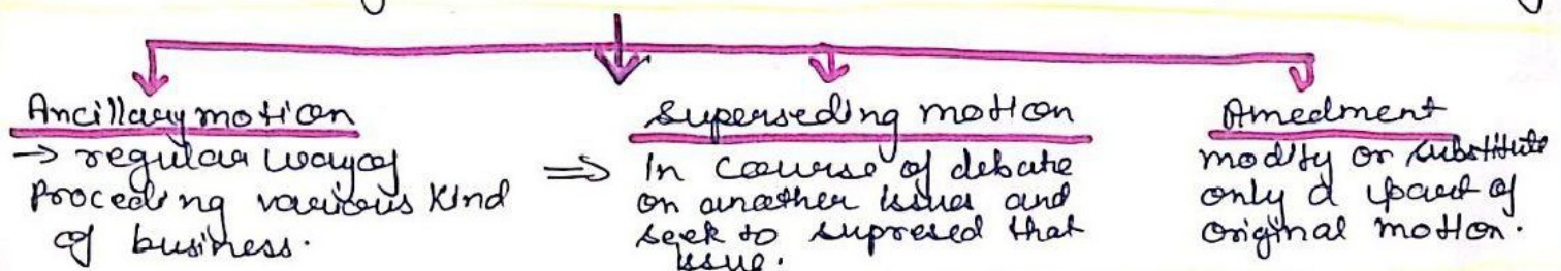 Ancillary motion
→ regular way of
Proceding various Kind
of business.
Superseding motion
⇒ In course of debate
on another issues and
seek to supresed that
issue.
Amedment
modify or substitute
only a part of
original motion.